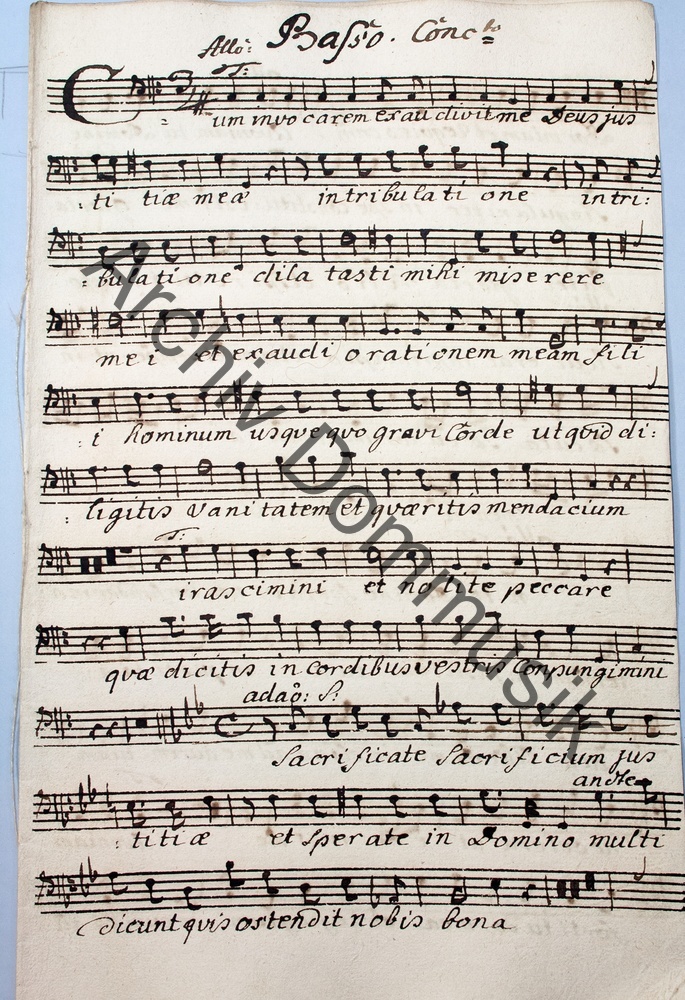 Allo: Basso. Conc.to
T:
Cum invocarem exaudivit me Deus jus
: ti tiæ meæ in tribulati one in tri:
: bulati one dila tasti mihi miserere
me i et exaudi orationem meam fili
: i hominum usque quo gravi Corde ut quid di:
: ligitis vani tatem et quæritis mendacium
T:
irascimini et no lite peccare
quæ dicitis in Cordibus vestris Compungimini
adao: S:
Sacrificate Sacrificium jus
andte
: titiæ et sperate in Domino multi
dicunt quis ostendit nobis bona
Archiv Dommusik